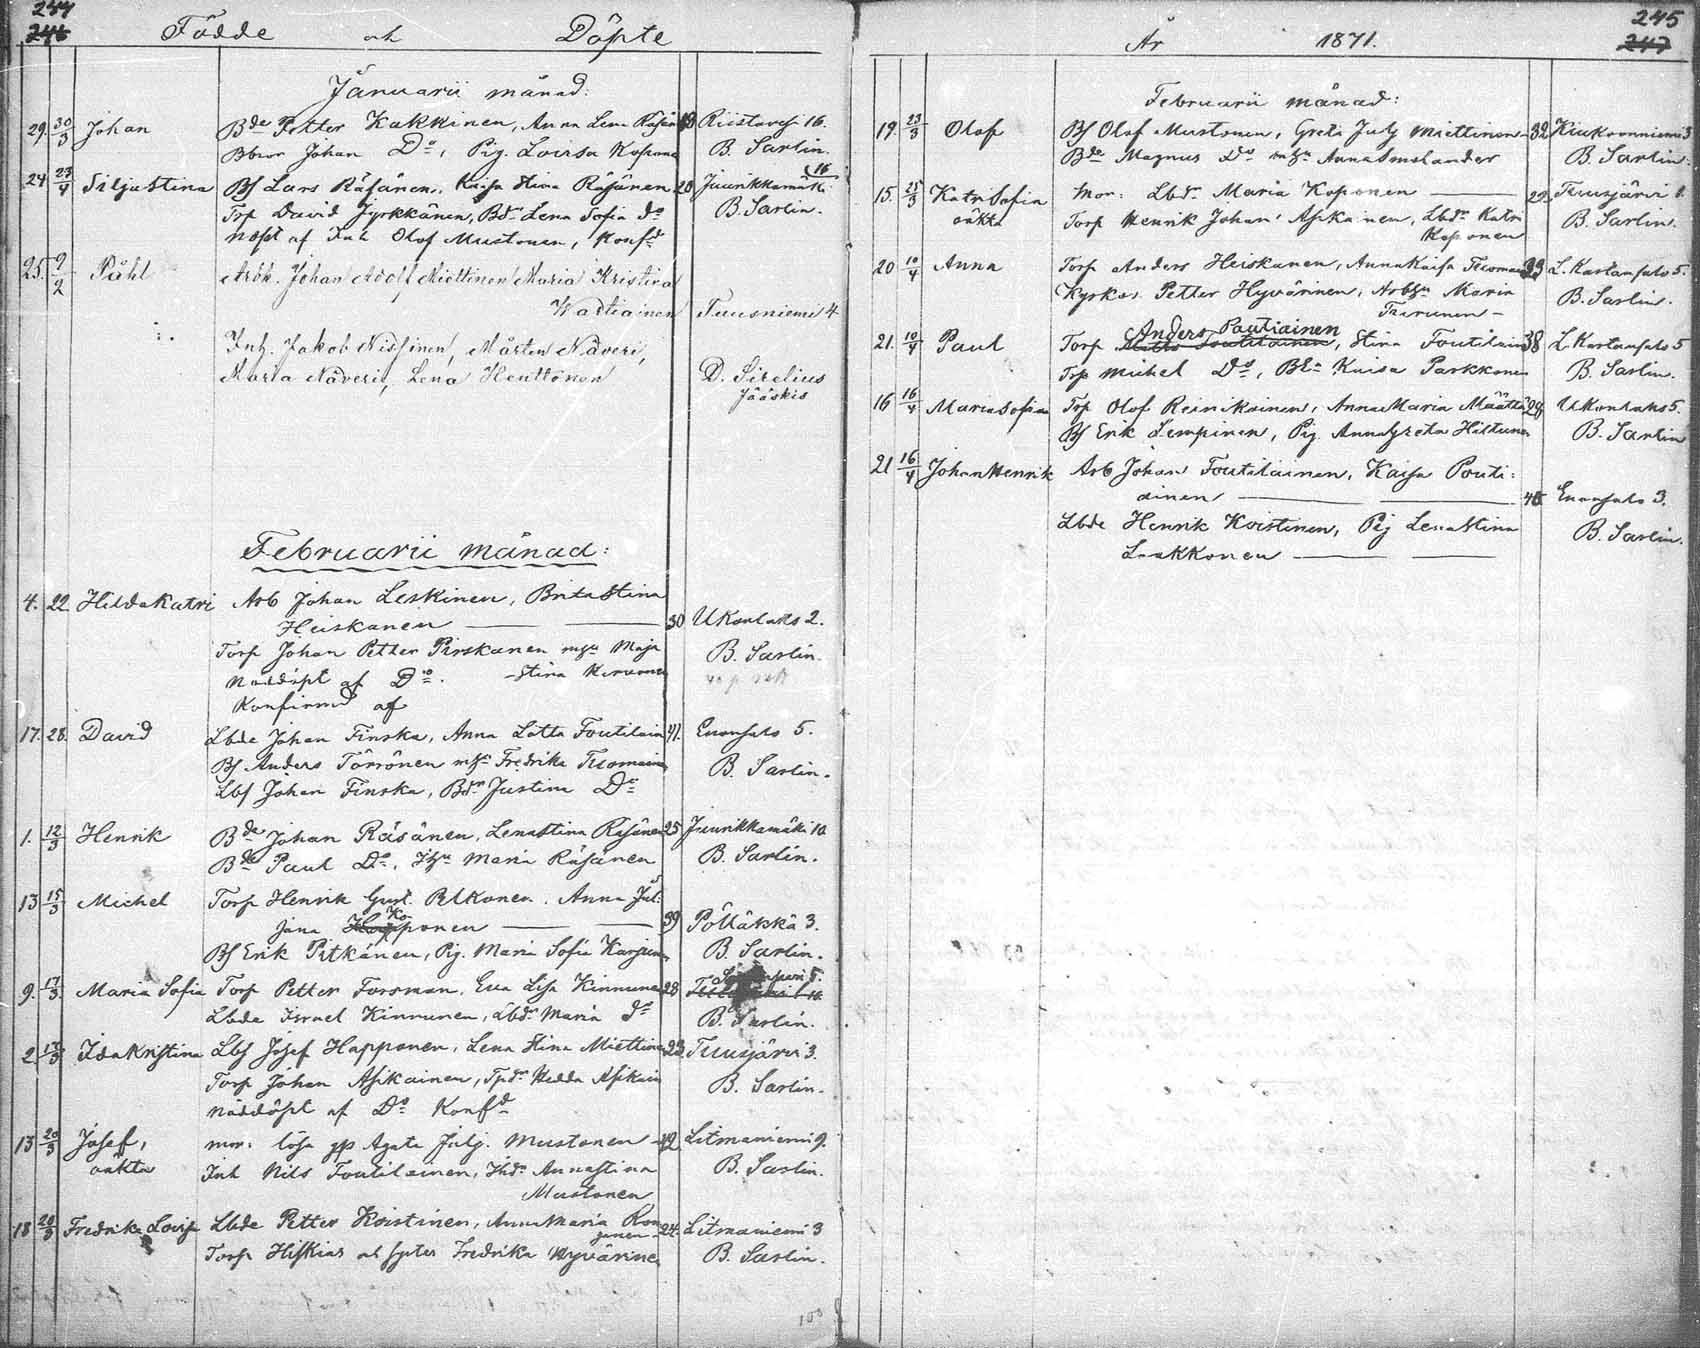 244
246
Födde och Döpte
Januarii månad:
29. 30/3 Johan Bde Petter Kakkinen, Anna Lena Räsän Riistavesi 16.
Bbror Johan Do, Pig. Lovisa Koponen B. Sarlin.
24 23/4 Silja Stina Bf Lars Räsänen, Kaisa Stina Räsänen 28 Juurikkamäki 16
Torp David Jyrkkänen, Bdr Lena Sofia do B. Sarlin.
nöpt af Inh Olof Mustonen, Konfd
25. 9/2 Påhl Arbk. Johan Adolf Miettinen Maria Kristina
Wadtiainen Tuusniemi 4
Inh. Jakob Nissinen, Mårten Näveri,
Maria Näveri, Lena Henttonen D. Sirelius
Jääskis
Februarii månad:
4. 22 Hilda Katri Arb Johan Leskinen, Brita Stina
Heiskanen 30 Ukonlaks 2.
Torp Johan Petter Pirskanen Maja B. Sarlin.
Nöddöpt af Do. Stina
Konfirmd af
17. 28. David Lbde Johan Finska, Anna Lotta Toutilain 41. Enonsalo 5.
Bf Anders Törrönen Fredrika Tuomain B. Sarlin.
Lbf Johan Finska, Bdr Justina Do
1. 12/3 Henrik Bde Johan Räsänen, Lena Stina Räsänen 25 Juurikkamäki 10
Bde Paul Do. Maria Räsänen B. Sarlin.
13 15/3 Michel Torp Henrik Gust. Pelkonen. Anna Jul:
jana Koponen 39 Pölläkkä 3.
Bf Erik Pitkänen, Pig. Maria Sofia B. Sarlin.
9. 17/3 Maria Sofia Torp Petter Forsman, Eva Lisa Kinnunen 28 5.
Lbde Israel Kinnunen, Lbdr Maria do B. Sarlin.
2. 17/3 Ida Kristina Lbf Josef Happonen, Lena Stina Miettinen 23 Tuusjärvi 3.
Torp Johan Asikainen, Tpdr Hedda Asikain B. Sarlin.
nöddöpt af Do Konfd
13 20/3 Josef, mor: lösa gp Agata Julj. Mustonen 42 Litmaniemi 9.
oäkta Inh Nils Toutilainen, Ihdr Anna Stina B. Sarlin.
Mustonen
18 20/3 Fredrika Lovisa Lbde Petter Koistinen, Anna Maria 24. Litmaniemi 3
Torp Hiskias och syster Fredrika Hyvärine B. Sarlin.
245
247
År 1871.
Februarii månad:
19. 23/3 Olof Bf Olof Mustonen, Greta Julj Miettinen 32 Kiukoonniemi 3
Bde Magnus Do Anna Smolander B. Sarlin.
15. 25/3 Katri Sofia Mor: Lbdr Maria Koponen 29. Tuusjärvi 1.
oäkta Torp Henrik Johan Asikainen, Lbdr Katri B. Sarlin.
Koponen
20 10/4 Anna Torp Anders Heiskanen, Anna Kaisa Tuomain 33 L. Kartansalo 5.
Petter Hyvärinen, Maria B. Sarlin.
21. 10/4 Paul Torp Anders Poutiainen, Stina Toutilain 38 L. Kartansalo 5
Torp Michel Do, Kaisa Parkkonen B. Sarlin.
16 16/4 Maria Sofia Torp Olof Reinikainen, Anna Maria Määttä 28 Ukonlaks 5.
Bf Erik Lempinen, Pig Anna Greta Hiltunen B. Sarlin
21 16/4 Johan Henrik Arb Johan Toutilainen, Kaisa Pouti:
ainen Enonsalo 3.
Lbde Henrik Koistinen, Pig Lena Stina B. Sarlin.
Laakkonen